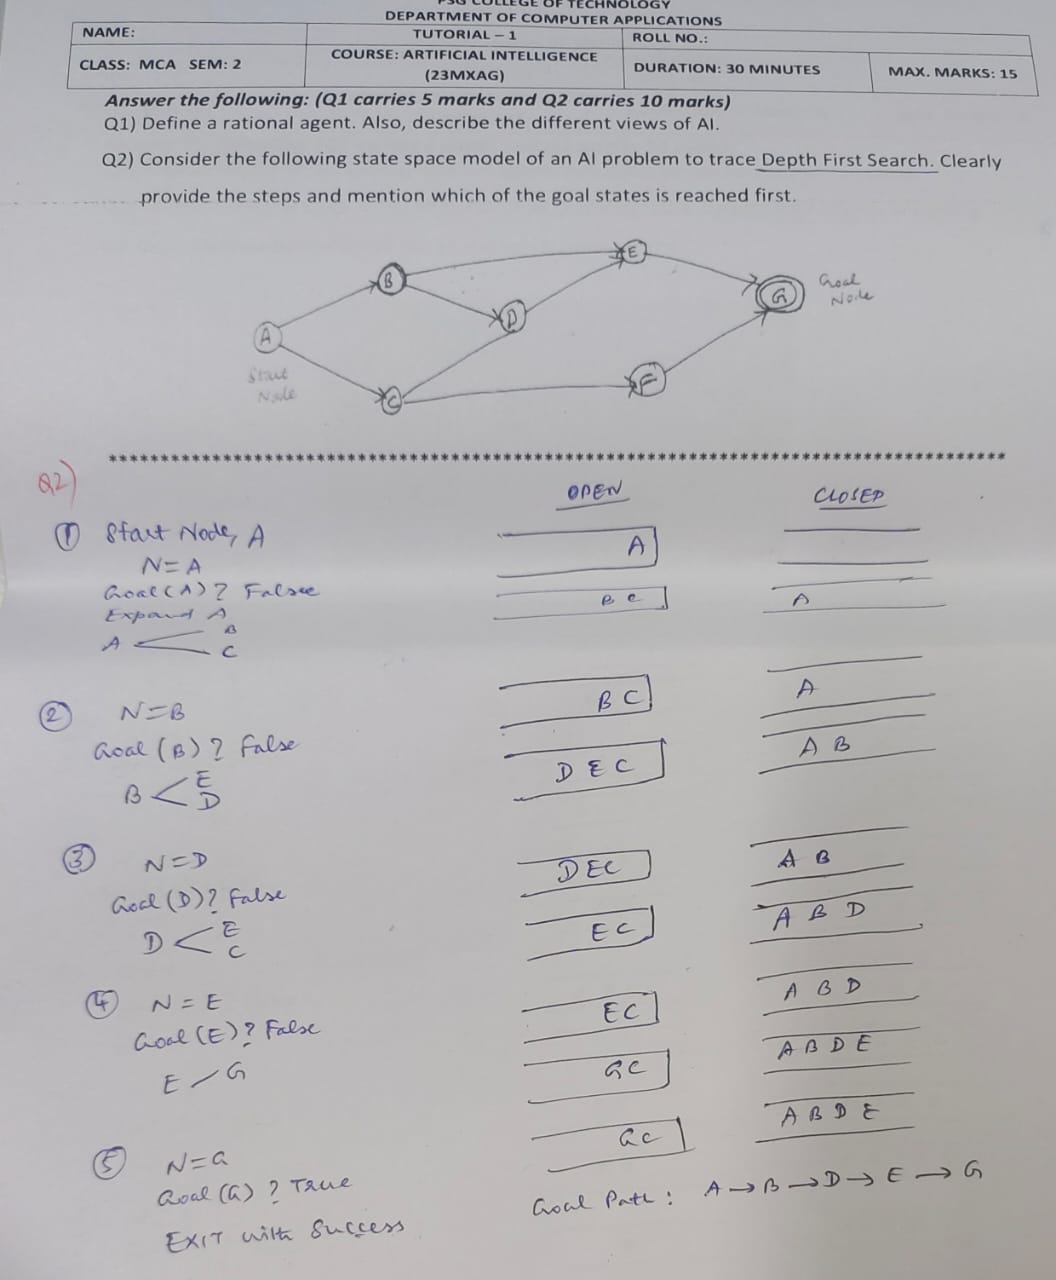 PSG COLLEGE OF TECHNOLOGY
DEPARTMENT OF COMPUTER APPLICATIONS
NAME: TUTORIAL – 1 ROLL NO.:
CLASS: MCA SEM: 2 COURSE: ARTIFICIAL INTELLIGENCE (23MXAG) DURATION: 30 MINUTES MAX. MARKS: 15
Answer the following: (Q1 carries 5 marks and Q2 carries 10 marks)
Q1) Define a rational agent. Also, describe the different views of AI.
Q2) Consider the following state space model of an AI problem to trace Depth First Search. Clearly
provide the steps and mention which of the goal states is reached first.
B E
A D G Goal Node
Start Node
C F
****************************************************************************************
Q2)
OPEN CLOSED
① Start Node, A A
N=A
Goal(A)? False B C A
Expand A
A < B C
② N=B B C A
Goal (B)? False D E C A B
B < E D
③ N=D D E C A B
Goal (D)? False E C A B D
D < E C
④ N=E E C A B D
Goal (E)? False G C A B D E
E / G
⑤ N=G G C A B D E
Goal (G)? True Goal Path: A → B → D → E → G
EXIT with Success